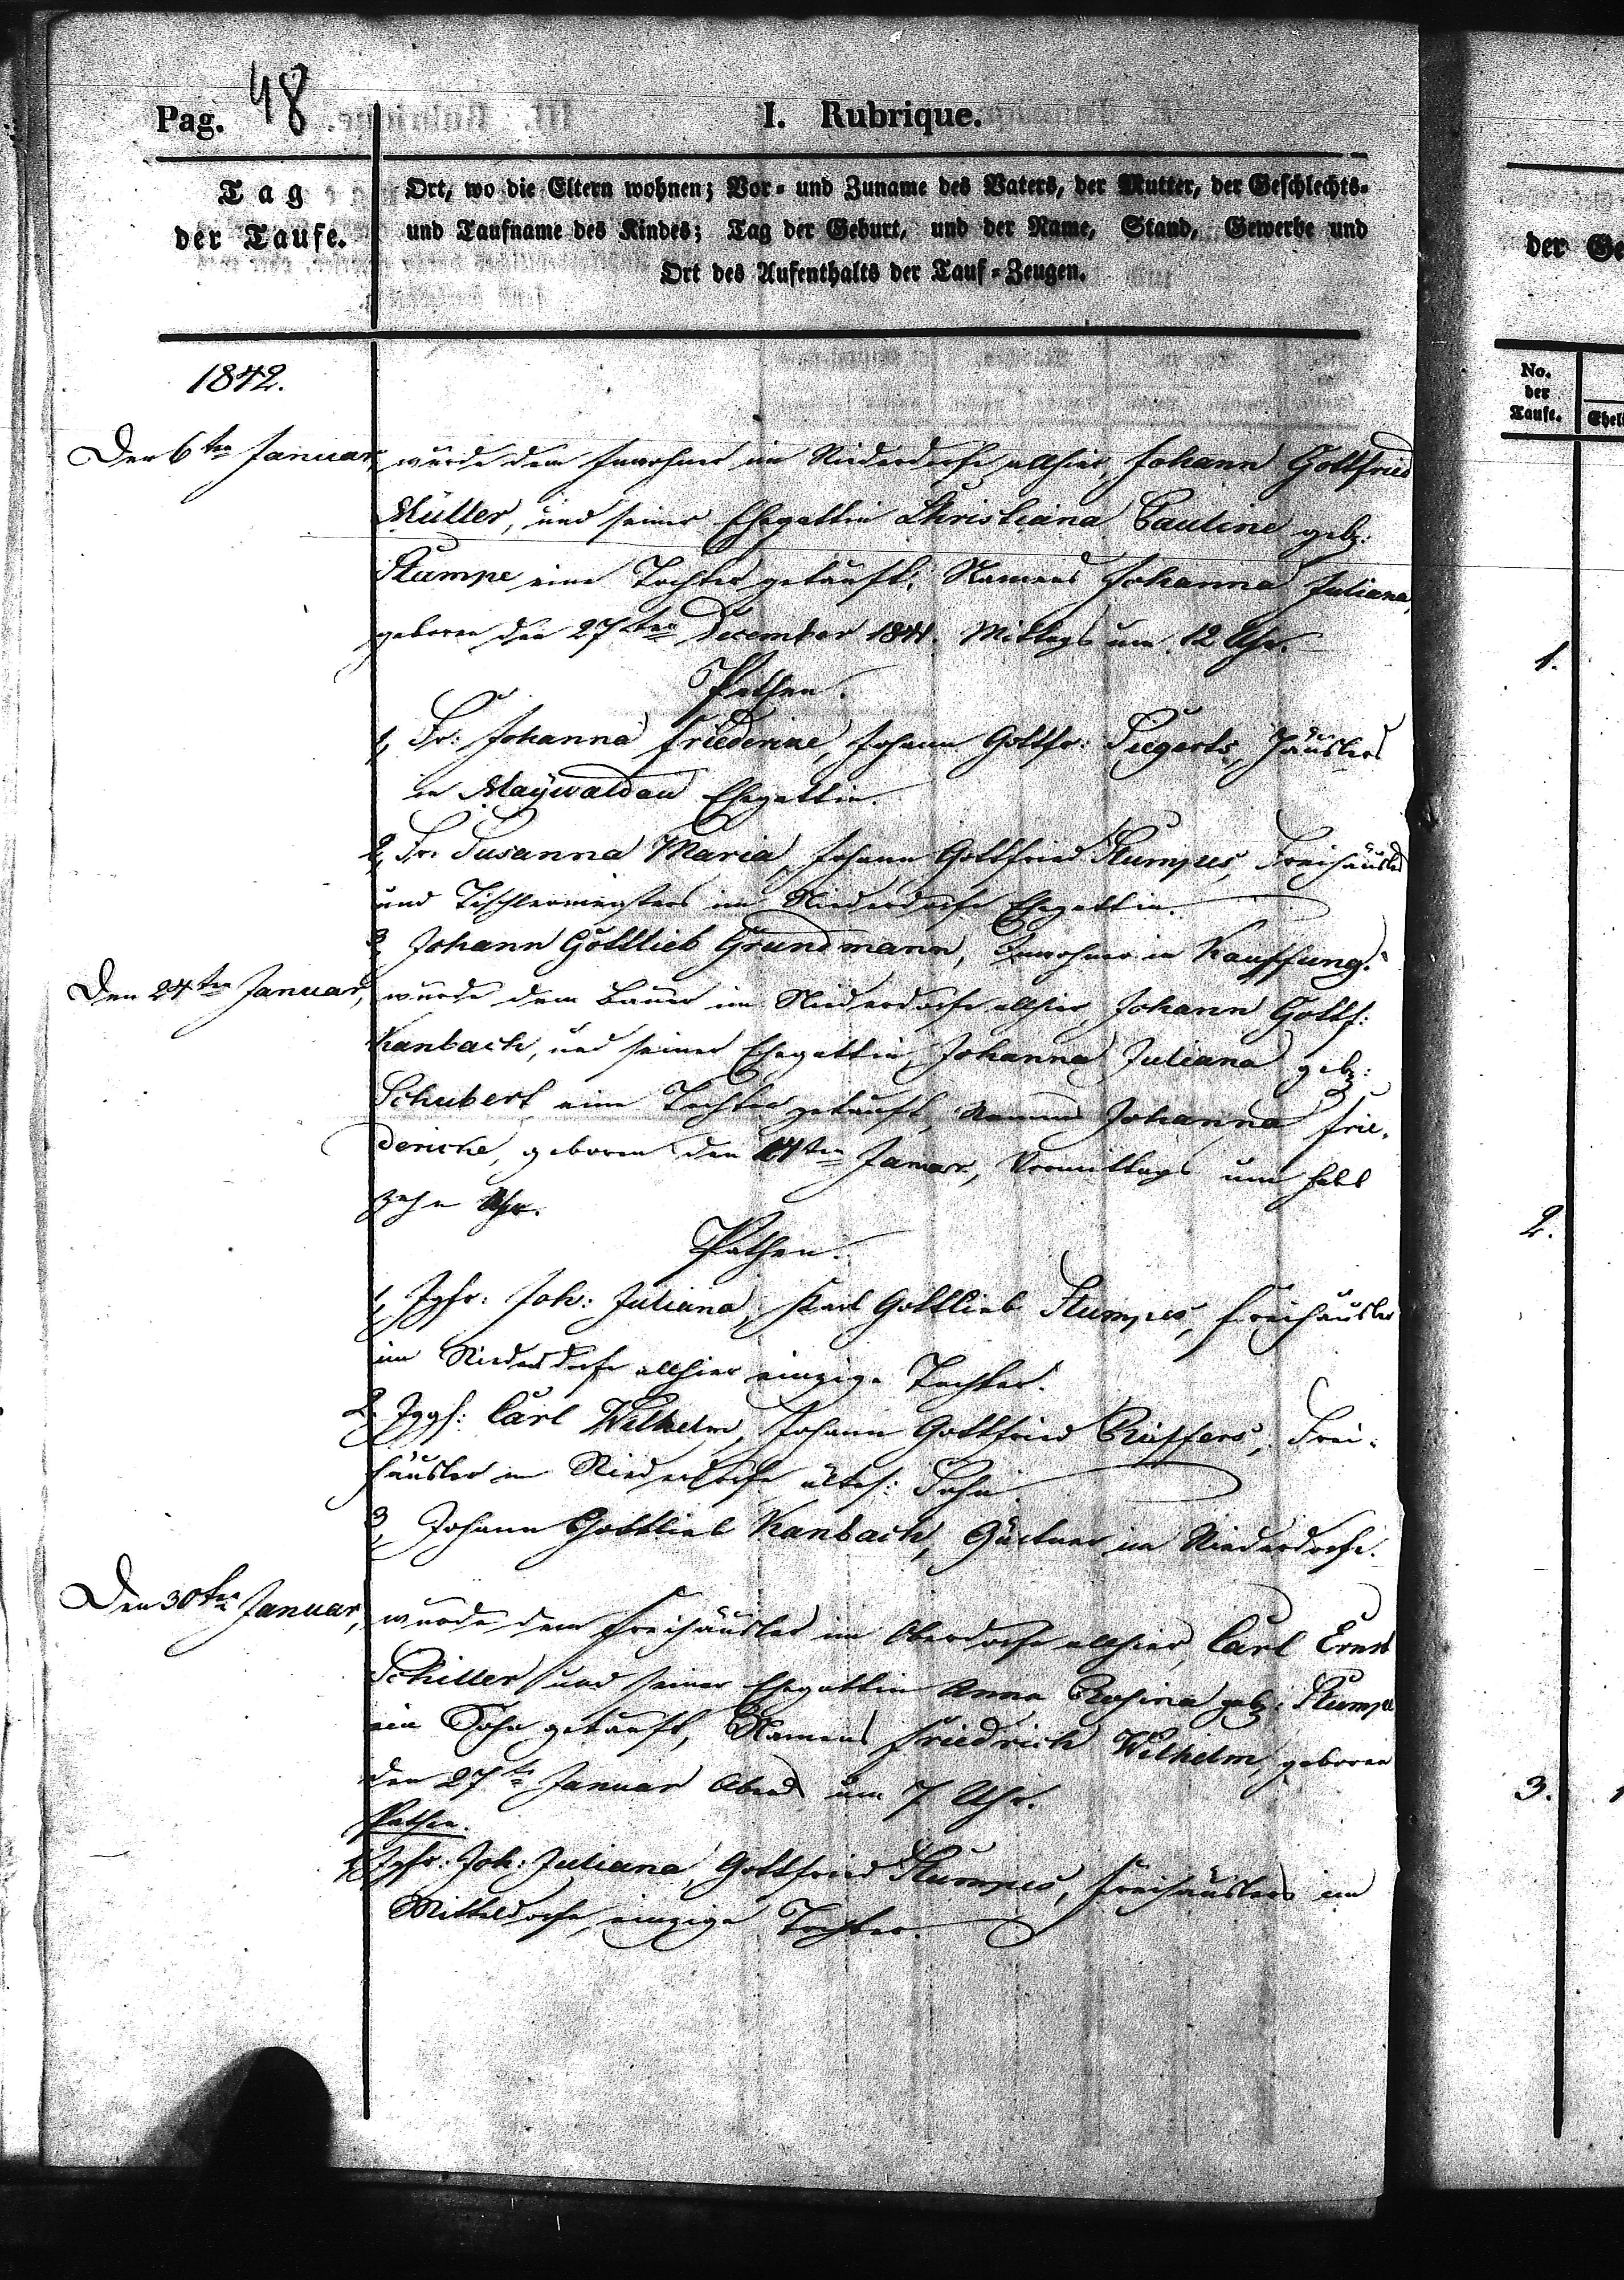 Pag. 48
I. Rubrique.
Tag
der Taufe.
Ort, wo die Eltern wohnen; Vor- und Zuname des Vaters, der Mutter, der Geschlechts-
und Taufname des Kindes; Tag der Geburt, und der Name, Stand, Gewerbe und
Ort des Aufenthalts der Tauf-Zeugen.
1842.
Den 6ten Januar wurde dem Inwohner im Niederdorfe allhier, Johann Gottfried
Müller, und seiner Ehegattin Christiana Pauline geb:
Stumpe eine Tochter getauft, Namens Johanna Juliana,
geboren den 27ten December 1841. Mittags um 12 Uhr.
Pathen.
1, Fr: Johanna Friederike, Johann Gottfr: Siegerts, Häuslers
in Maywaldau Ehegattin.
2, Fr. Susanna Maria, Johann Gottfried Stumpes, Freihäuslers
und Tischlermeisters im Niederdorfe Ehegattin.
3 Johann Gottlieb Grundmann, Inwohner in Kauffung.
Den 24ten Januar, wurde dem Bauer im Niederdorfe allhier, Johann Gottf:
Kanbach, und seiner Ehegattin, Johanna Juliana geb:
Schubert eine Tochter getauft, Namens Johanna Frie-
dericke, geboren den 14ten Januar, Vormittags um halb
zehn Uhr.
Pathen.
1, Jgfr: Joh: Juliana, Karl Gottlieb Stumpes, Freihäusler
im Niederdorfe allhier einzige Tochter.
2. Jggs: Carl Wilhelm, Johann Gottfried Rüffers, Frei-
häusler im Niederdorfe ältes: Sohn.
3, Johann Gottlieb Kanbach, Gärtner im Niederdorfe.
Den 30ten Januar, wurde dem Freihäusler im Oberdorfe allhier, Carl Ernst
Schiller und seiner Ehegattin Anna Rosina geb: Stumpe
ein Sohn getauft, Namens Friedrich Wilhelm, geboren
den 27ten Januar Abend um 7 Uhr.
Pathen.
1, Jgfr: Joh: Juliana, Gottfried Stumpes, Freihäuslers im
Mitteldorfe, einzige Tochter.
der Ge
No.
der
Taufe.
Ehel
1.
2.
3.